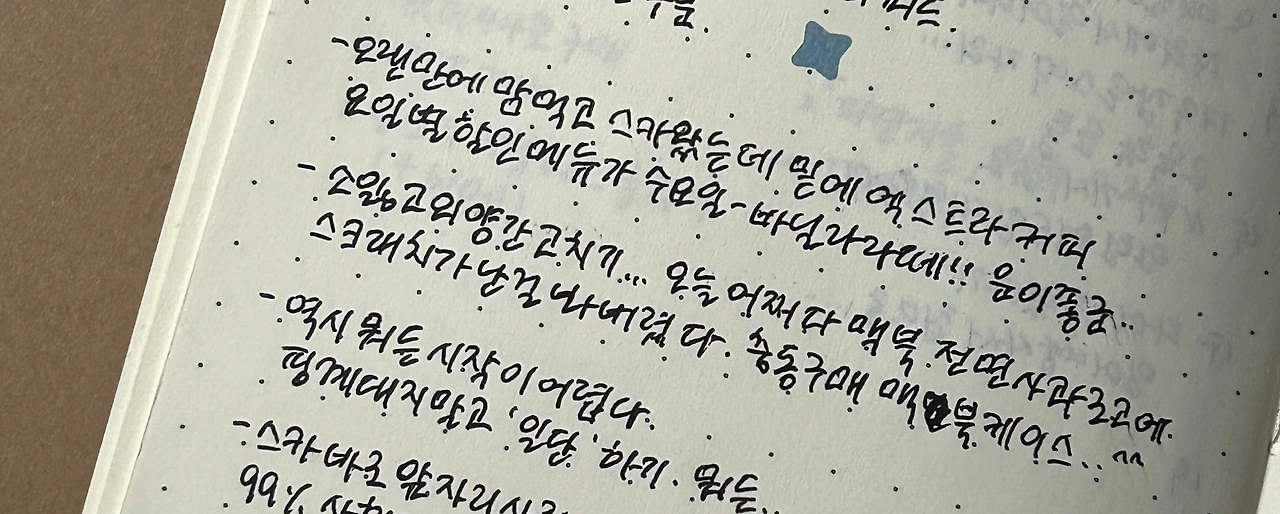 -오랜만에 맘먹고 스카왔는데 밑에 엑스트라 커피
요일별 할인메뉴가 수요일-바닐라라떼!! 운이좋군..
- 소잃고 외양간 고치기... 오늘 어쩌다 맥북 전면 사과로고에
스크래치가 난걸 봐버렸다. 충동구매 맥북케이스..^^
- 역시 뭐든 시작이 어렵다.
핑계대지말고 '일단' 하기. 뭐든..
- 스카 바로 앞자리
99%